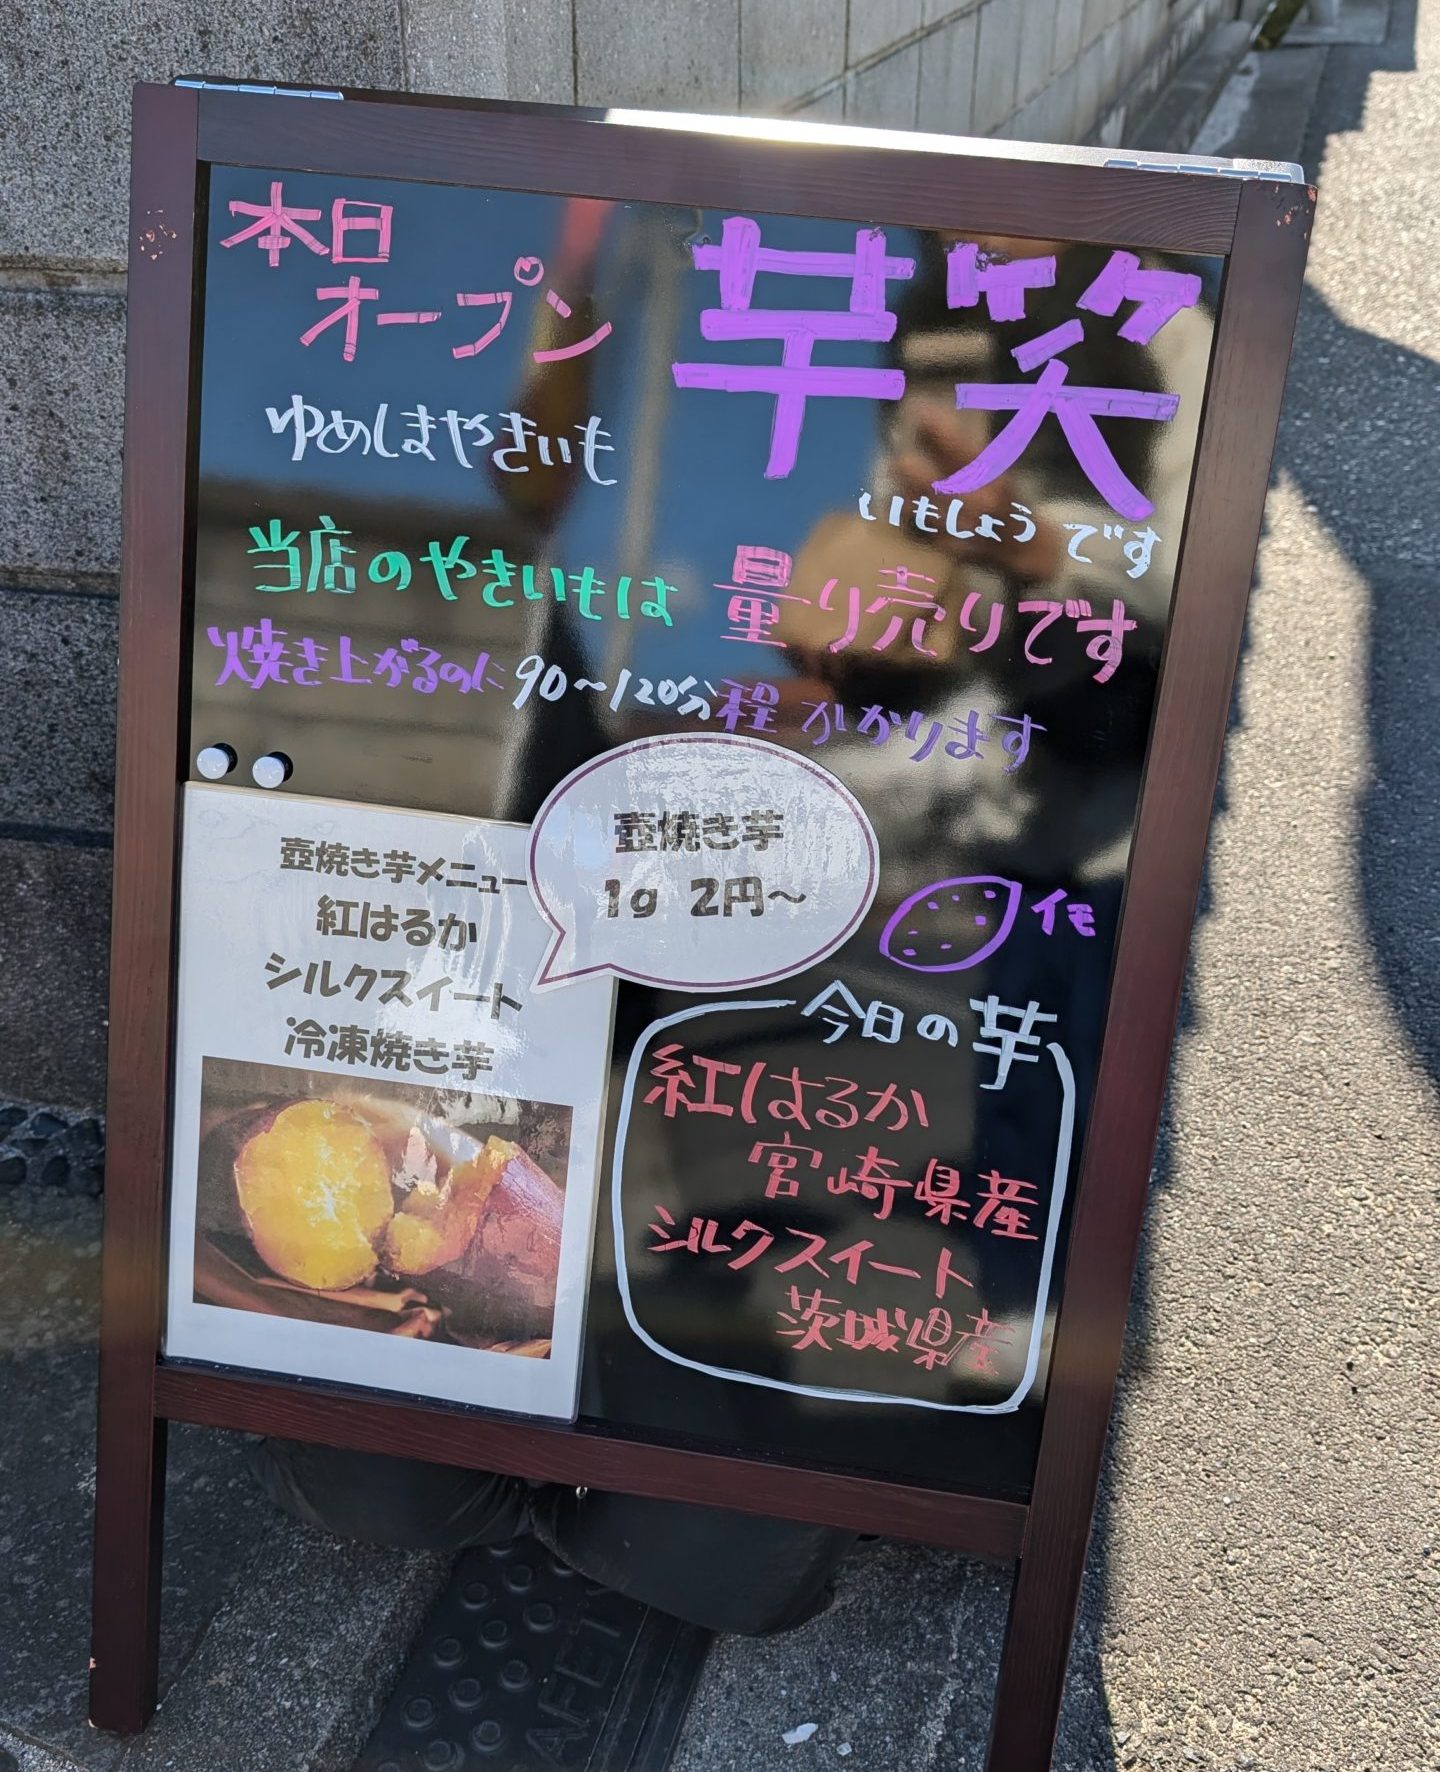 本日
オープン
芋笑
ゆめしまやきいも
いもしょうです
当店のやきいもは 量り売りです
焼き上がるのに90〜120分程かかります
壺焼き芋
1g 2円〜
壺焼き芋メニュー
紅はるか
シルクスイート
冷凍焼き芋
イモ
今日の芋
紅はるか
宮崎県産
シルクスイート
茨城県産